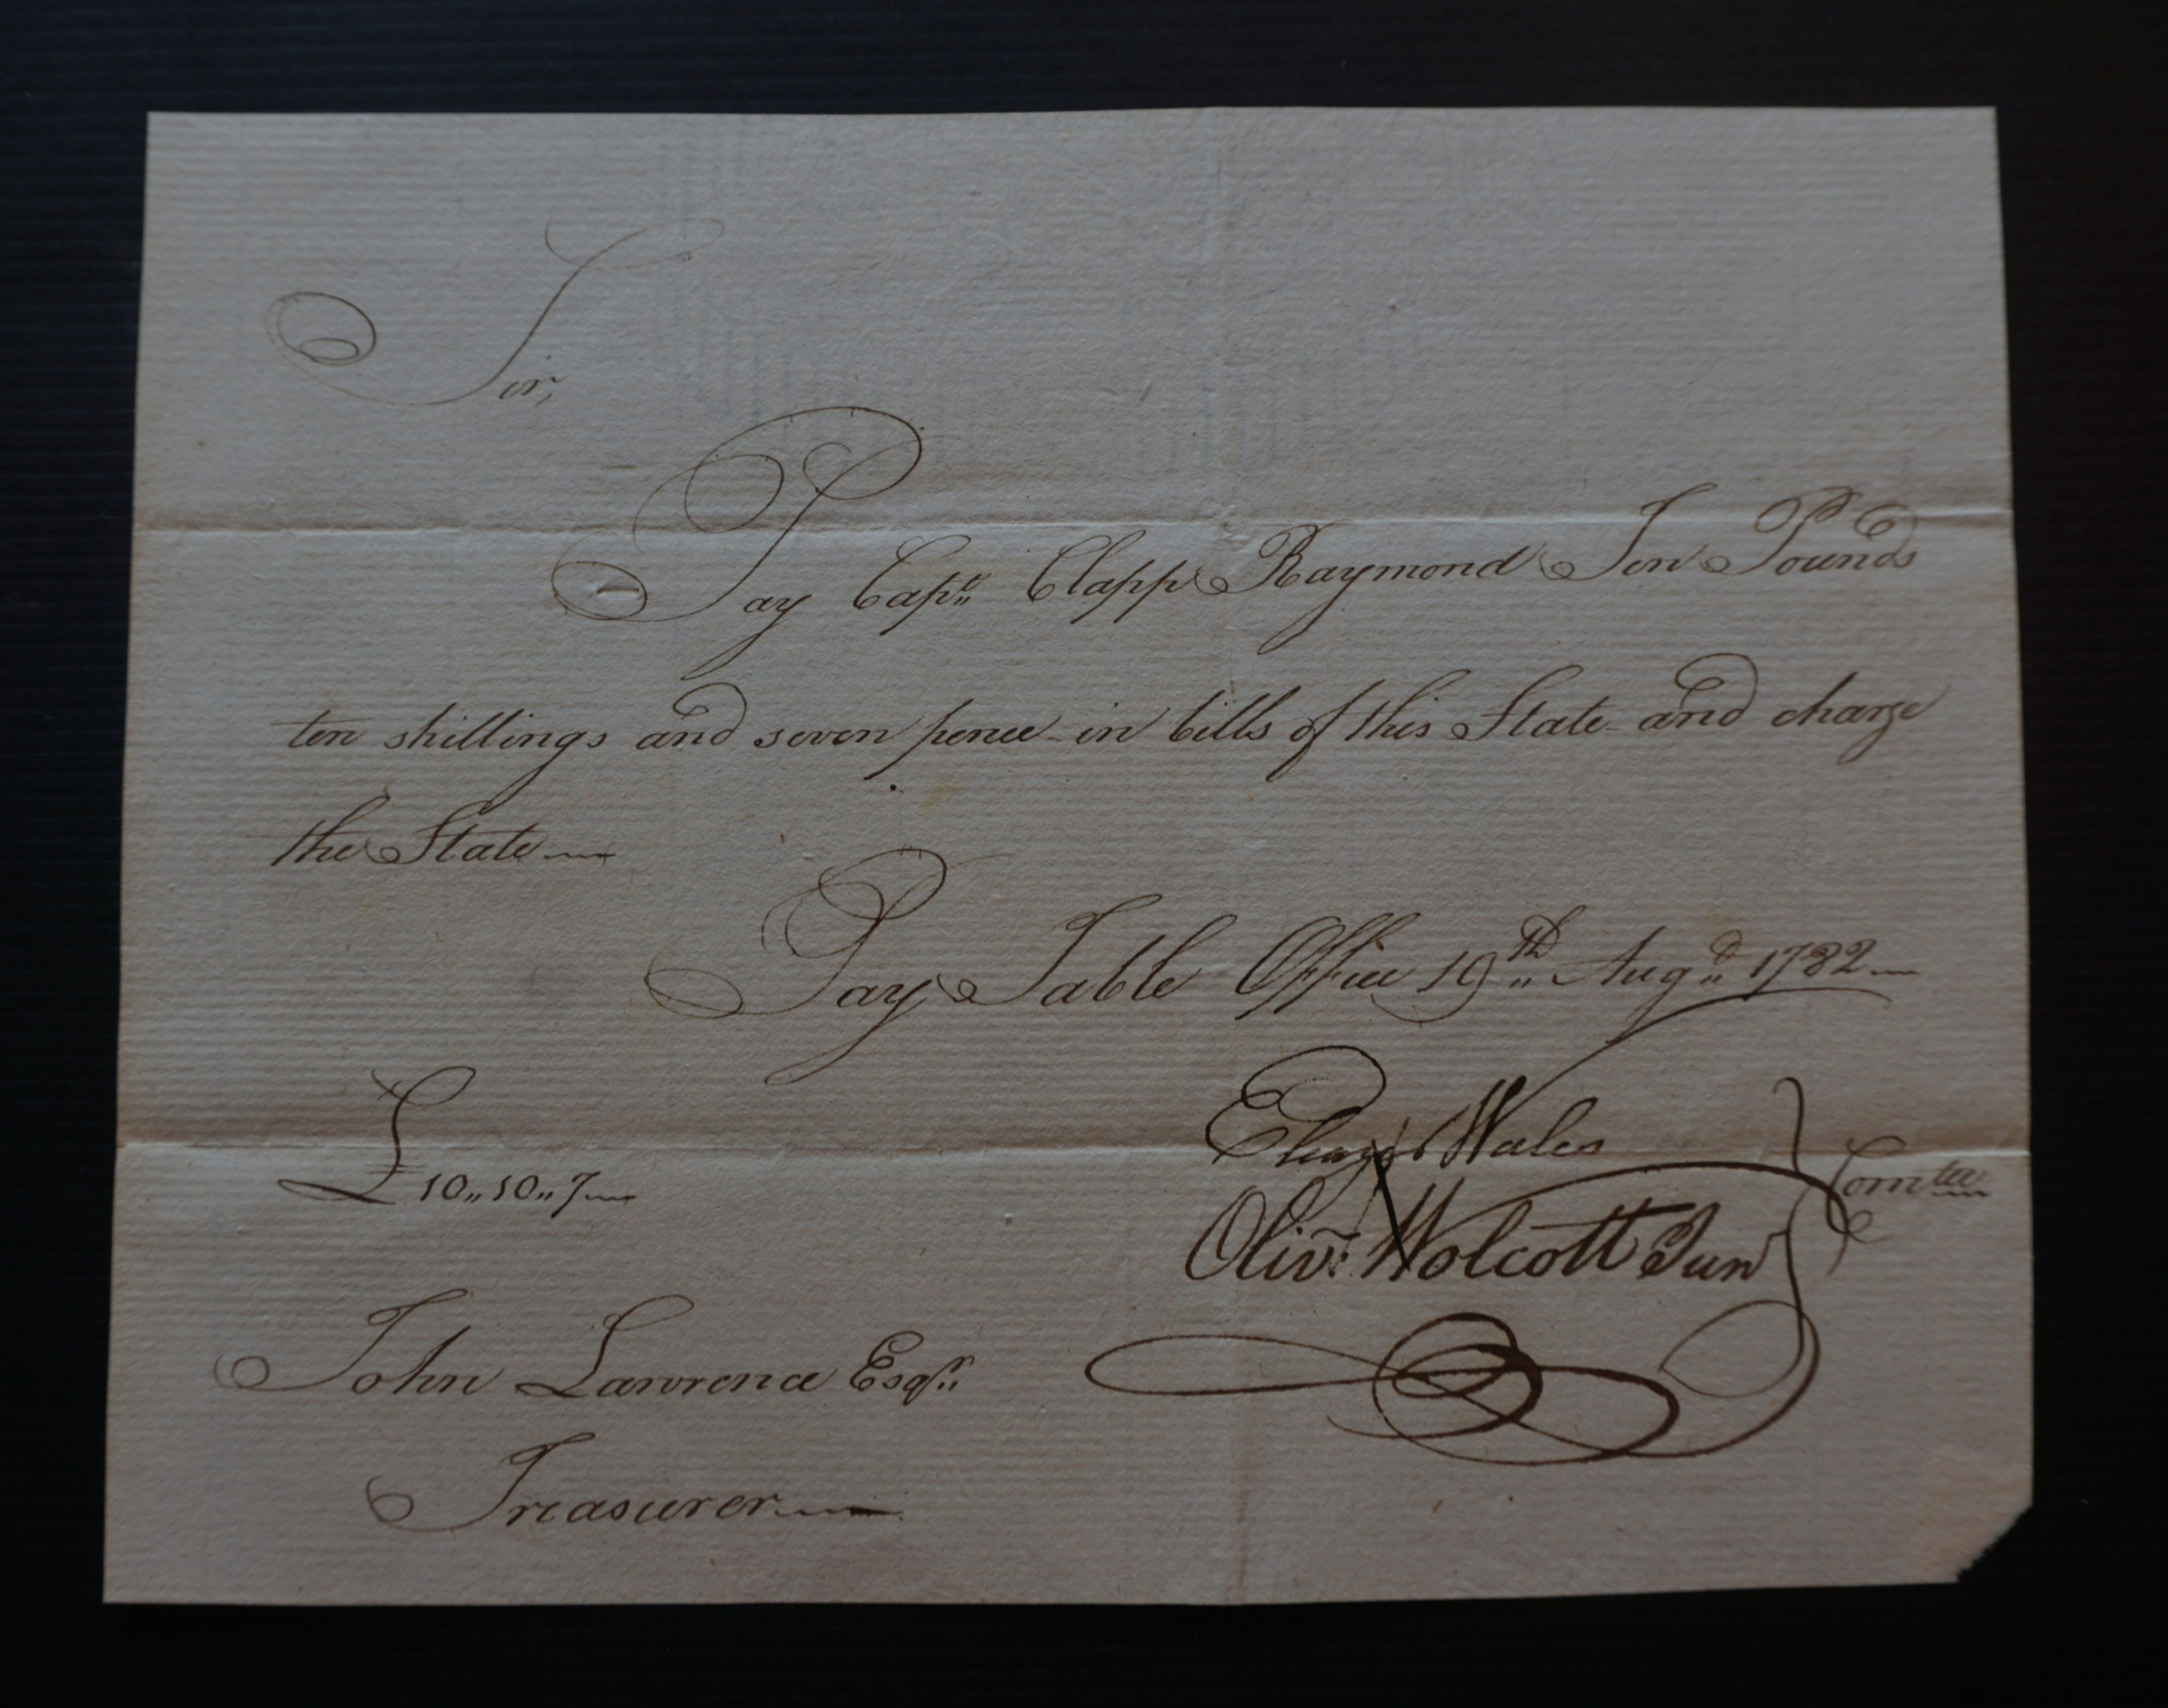 Sir,
Pay Capt. Clapp Raymond Ten Pounds
ten shillings and seven pence in bills of this State and charge
the State
Pay Table Office 19th Augt. 1782
£10,,10,,7
Eleazr Wales
Comtee
Olivr. Wolcott Junr
John Lawrence Esqr.
Treasurer